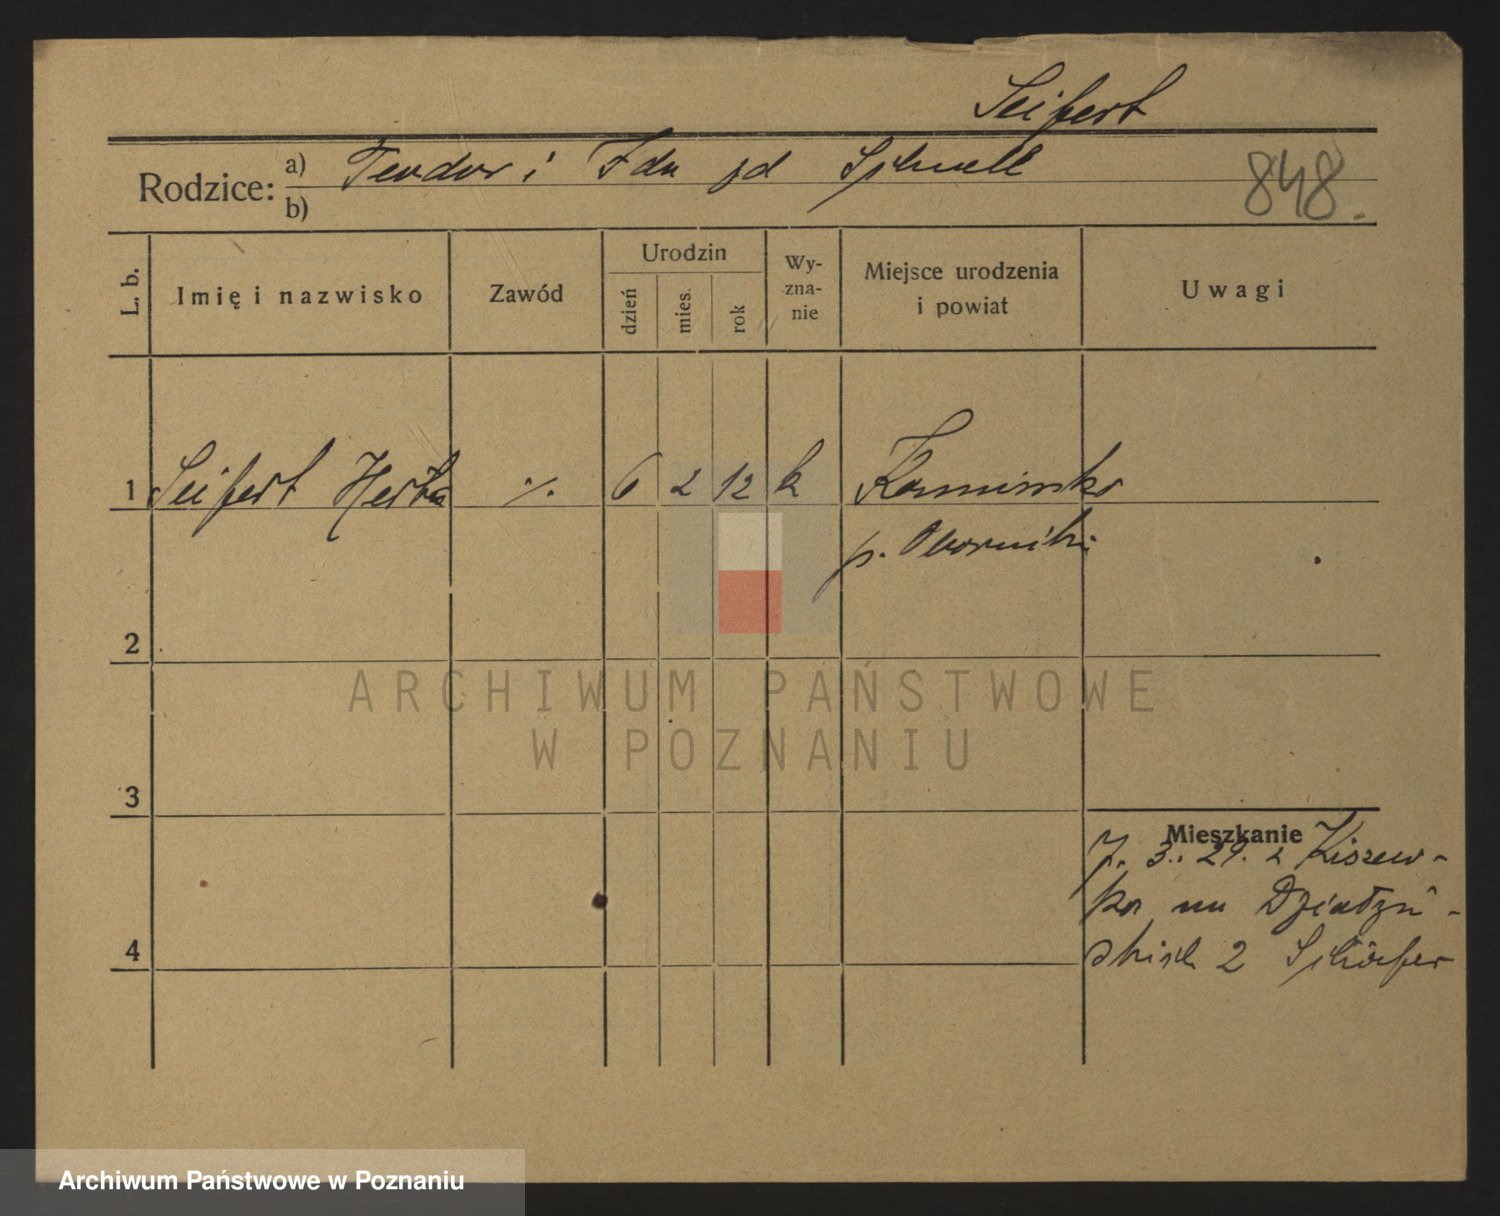 Seifert
Rodzice: a) Teodor i Ida zd Schnell
b)
848.
L. b.
Imię i nazwisko
Zawód
Urodzin
dzień
mies.
rok
Wy-
zna-
nie
Miejsce urodzenia
i powiat
Uwagi
1 Seifert Herta ·/. 6 2 12 k Kaminsko
p. Oborniki
2
ARCHIWUM PAŃSTWOWE
W POZNANIU
3
Mieszkanie
7. 3. 29. z Kiszew-
ka na Działyń-
skich 2 Schäfer
4
Archiwum Państwowe w Poznaniu